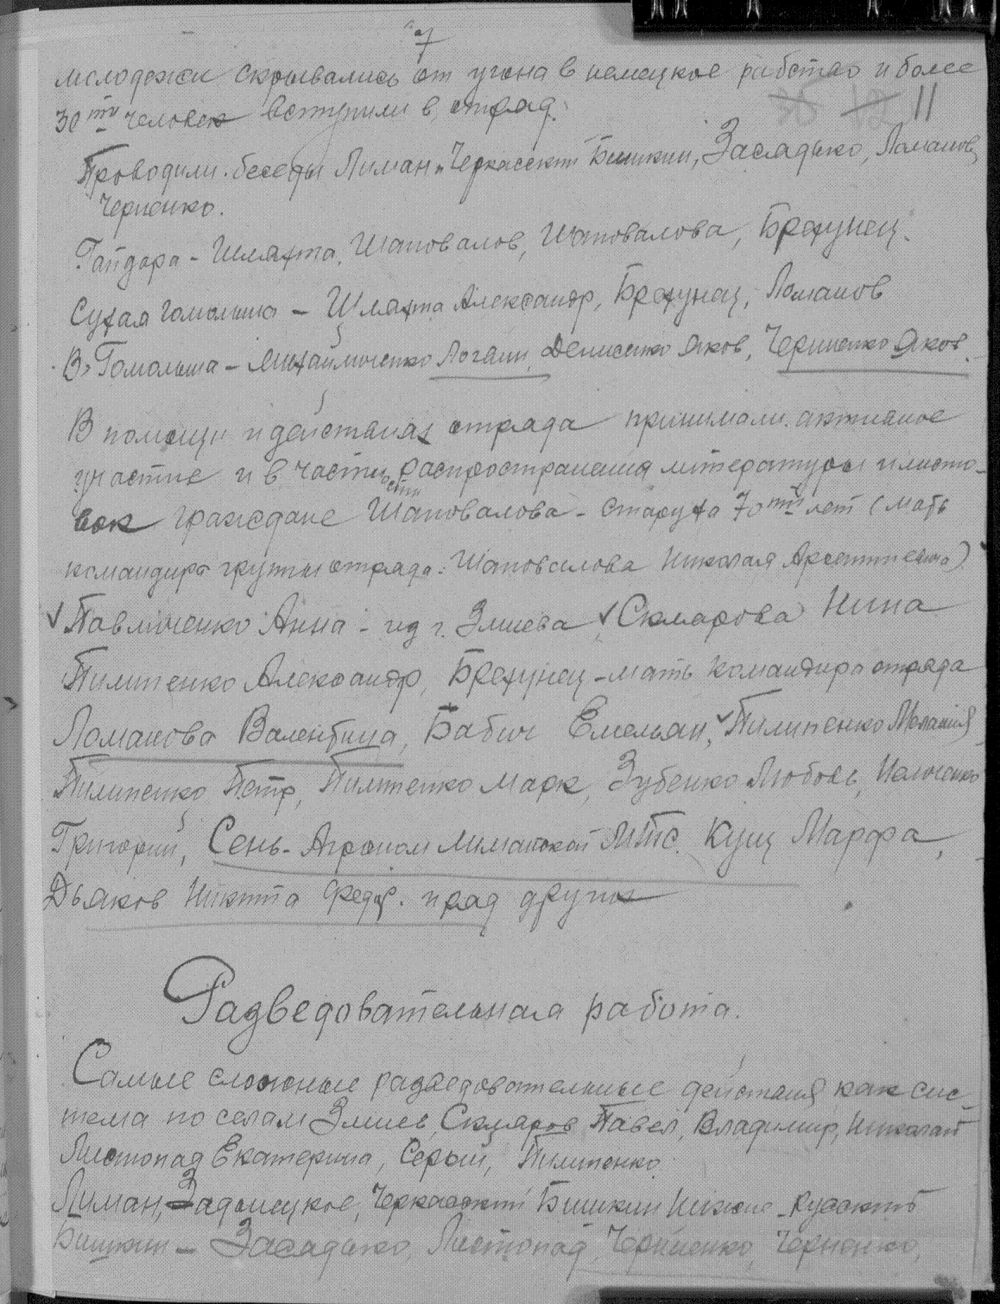 7
молодежи скрывались от угона в немецкое рабство и более
30ти человек вступили в отряд.
11
Проводили беседы Лиман, Черкасский Бишкин, Засядько, Ломанов,
Черненко.
Гайдара - Шляхта, Шаповалов, Шаповалова, Брехунец.
Сухая Гомольша - Шляхта Александр, Брехунец, Ломанов
В. Гомольша - Михайличенко Логвин, Денисенко Яков, Черненко Яков.
В помощи и действиях отряда принимали активное
участие и в части распространения литературы и листо-
вок граждане Шаповалова - старуха 70ти лет (мать
командира группы отряда: Шаповалова Николая Арсентиевича)
Павличенко Анна - из г. Змиева, Склярова Нина
Пилипенко Александр, Брехунец - мать командира отряда
Ломанова Валентина, Бабич Емельян, Пилипенко Мелания
Пилипенко Петр, Пилипенко Марк, Зубенко Любовь,
Григорий, Сень - Агроном Лиманской МТС. Кущ Марфа,
Дьяков Никита Федор. и ряд других
Разведовательная работа.
Самые сложные разведовательные действия, как сис-
тема по селам Змиев, Скляров Павел, Владимир, Николай
Листопад Екатерина, Серый, Пилипенко
Лиман, Задонецкое, Черкасский Бишкин Нижне-Русский
Бишкин - Засядько, Листопад, Черненко, Черненко,